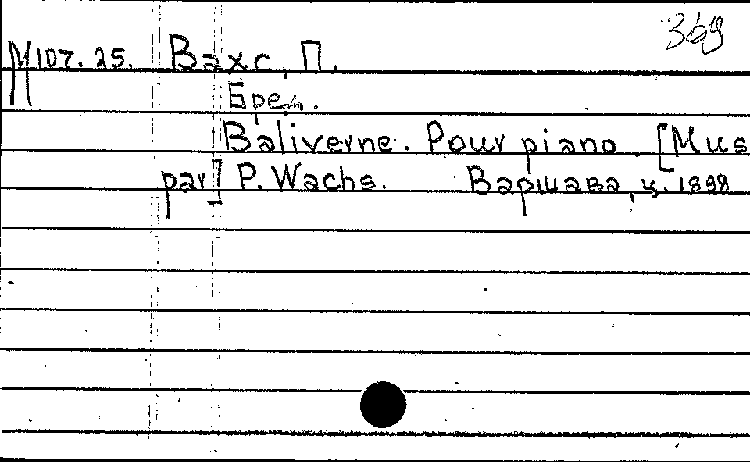 369
М107.25. Вахс, П.
Бред.
Baliverne. Pour piano. [Mus
par] P. Wachs. Варшава, ц. 1898